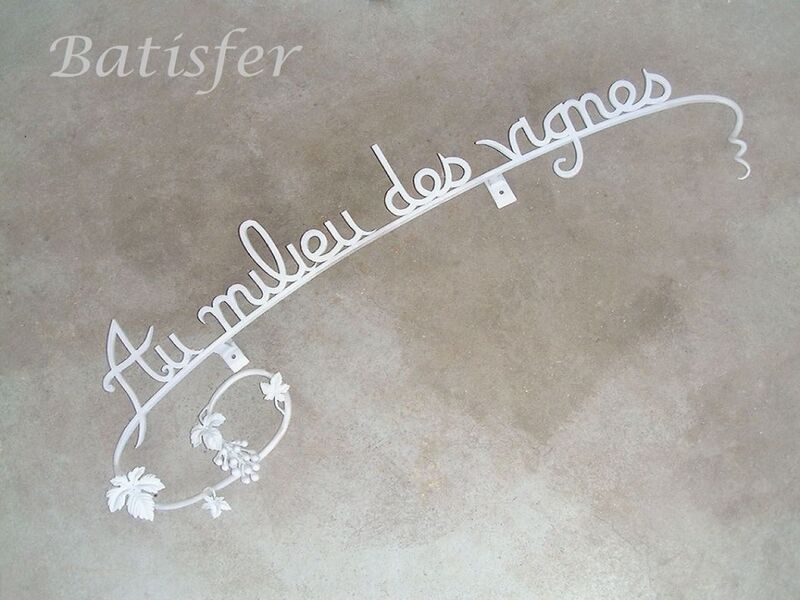 Batisfer
Au milieu des vignes